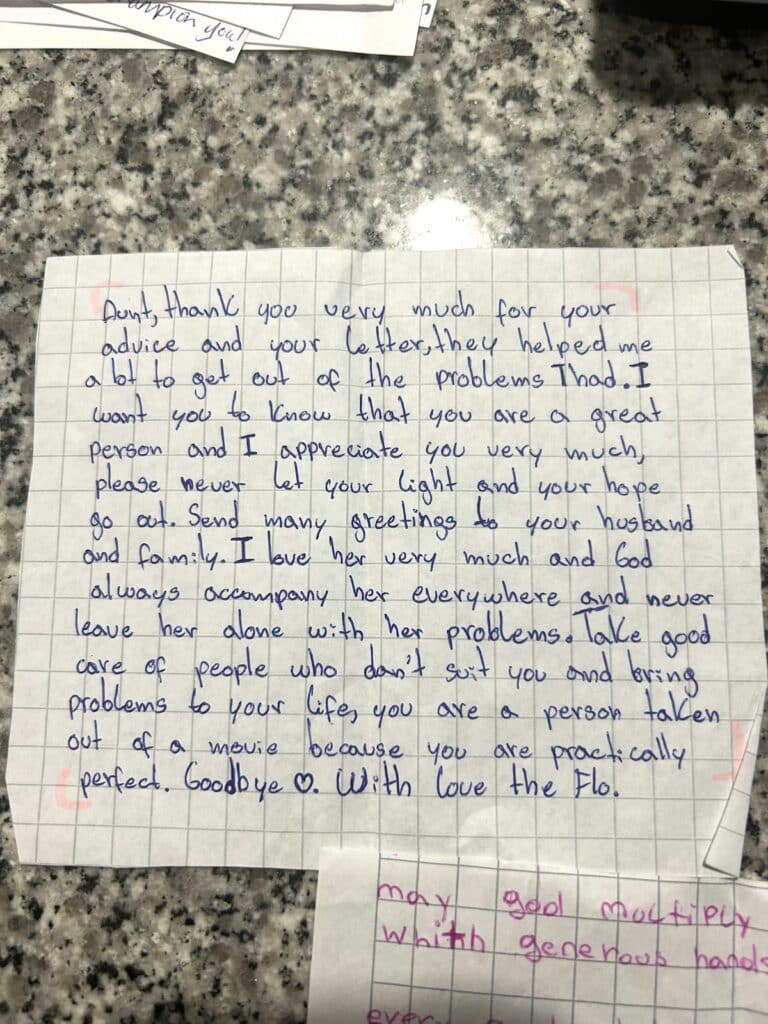 you!
Aunt, thank you very much for your
advice and your letter, they helped me
a lot to get out of the problems I had. I
want you to know that you are a great
person and I appreciate you very much,
please never let your light and your hope
go out. Send many greetings to your husband
and family. I love her very much and God
always accompany her everywhere and never
leave her alone with her problems. Take good
care of people who don't suit you and bring
problems to your life, you are a person taken
out of a movie because you are practically
perfect. Goodbye ♡. With love the Flo.
may god multiply
whith generous hands